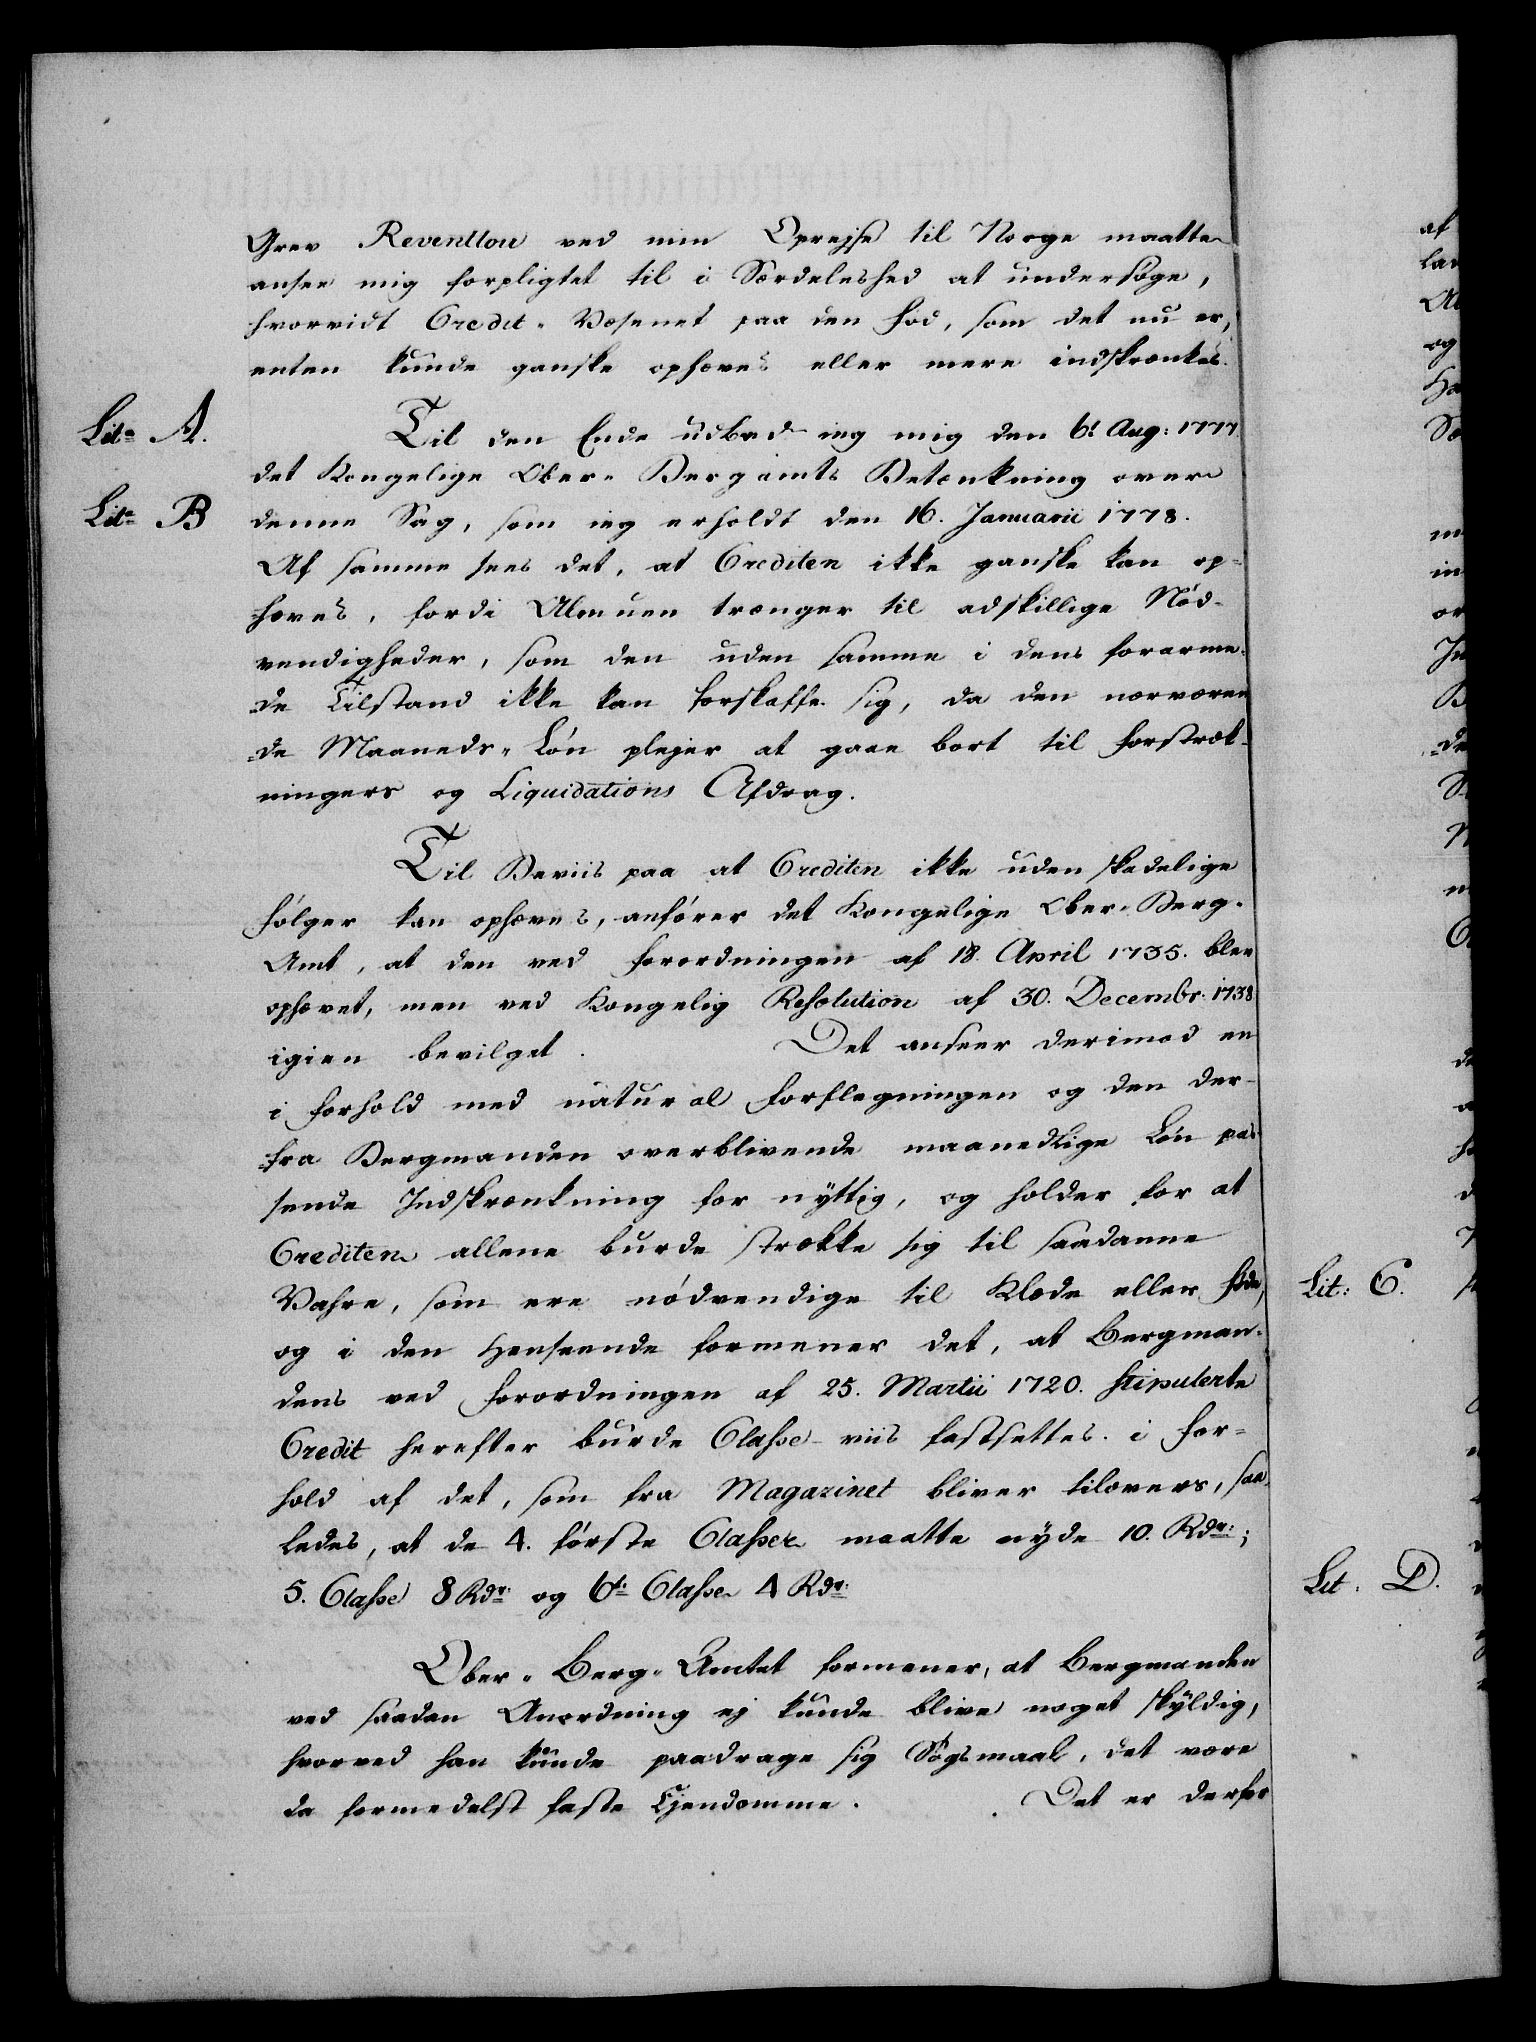 Grev Reventlou ved min Oprejse til Norge maatte
ansee mig forpligtet til i Særdeleshed at undersøge,
hvorvidt Credit-Væsenet paa den Fod, som det nu er,
enten kunde ganske ophæves eller mere indskrænkes.
Litr A. Til den Ende udbad ieg mig den 6t Aug: 1777
det Kongelige Ober-Bergamts Betænkning over
Litr B denne Sag, som ieg erholdt den 16. Januarii 1778.
Af samme sees det, at Crediten ikke ganske kan op-
hæves, fordi Almuen trænger til adskillige Nød-
vendigheder, som den uden samme i dens forarme-
de Tilstand ikke kan forskaffe sig, da den nærværen
de Maaneds-Løn plejer at gaae bort til Forstræk-
ningers og Liquidations Afdrag.
Til Beviis paa at Crediten ikke uden skadelige
Følger kan ophæves, anfører det Kongelige Ober-Berg-
Amt, at den ved Forordningen af 18. April 1735. blev
ophævet, men ved Kongelig Resolution af 30. Decembr: 1738
igien bevilget. Det anseer derimod en
i Forhold med natural Forflegningen og den der-
fra Bergmanden overblivende maanedlige Løn pas
sende Indskrænkning for nyttig, og holder for at
Crediten allene burde strække sig til saadanne
Vahre, som ere nødvendige til Klæde eller Føde,
og i den Henseende formener det, at Bergman-
dens ved Forordningen af 25. Martii 1720. stipulerte
Credit herefter burde Classe-viis fastsettes i For-
hold af det, som fra Magazinet bliver tilovers, saa-
ledes, at de 4. første Classer maatte nyde 10. Rdr:;
5. Classe 8 Rdr: og 6t: Classe 4 Rdr:
Ober-Berg-Amtet formener, at Bergmanden
ved saadan Anordning ej kunde blive noget skyldig,
hvorved han kunde paadrage sig Søgsmaal, det være
da formedelst faste Ejendomme. Det er derfor
af
og
Lit: C.
Lit: D.